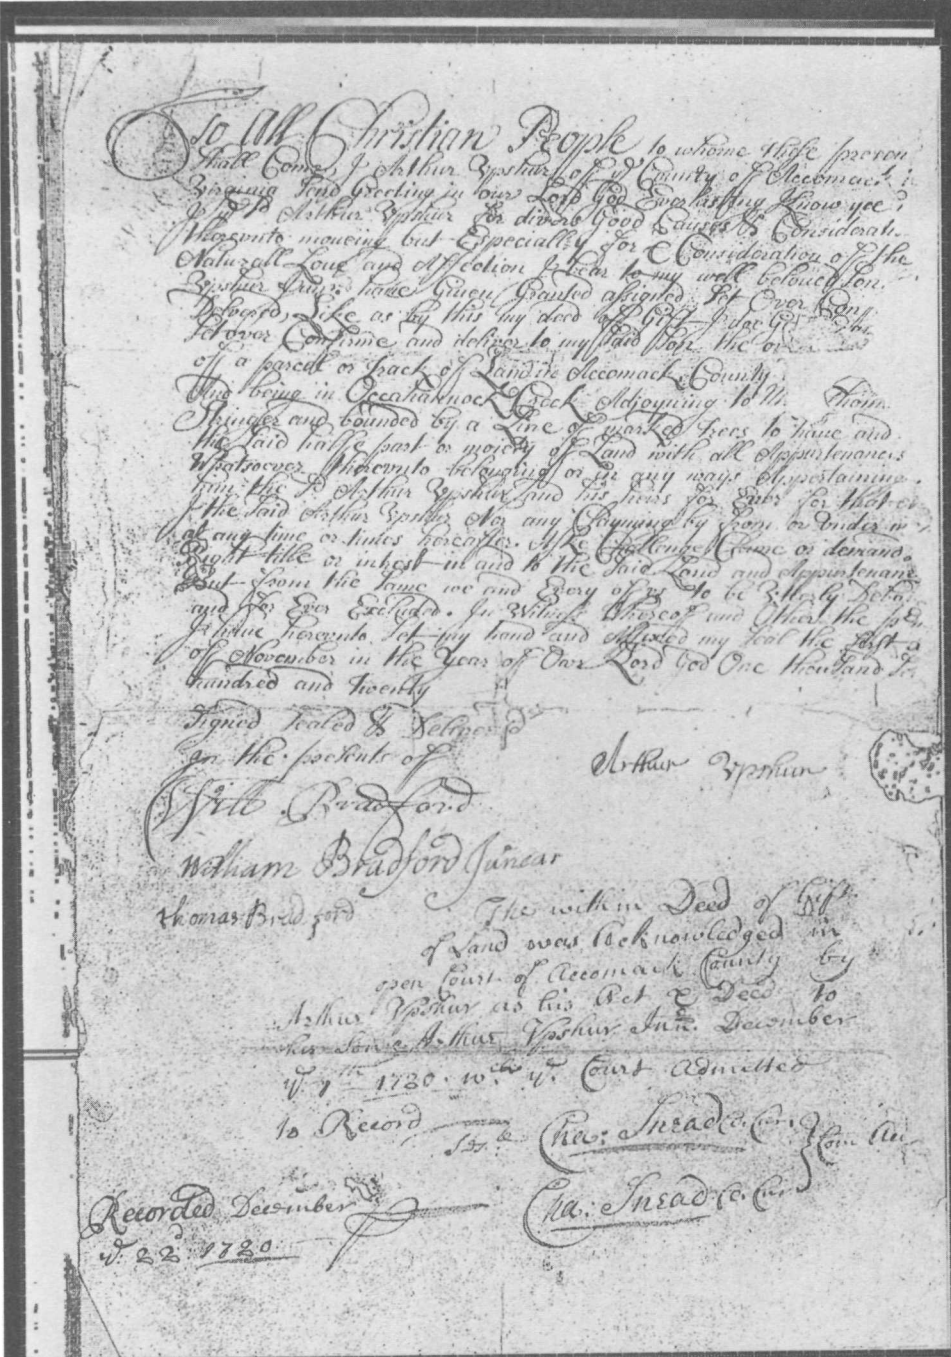 To All Christian People to whome these presen
shall Come, I Arthur Upshur of ye County of Accomack in
Virginia Send Greeting in our Lord God Everlasting Know yee
I ye sd Arthur Upshur for divers Good Causes & Considerati
thereunto moveing but Especially for ye Consideration of the
Naturall Love and Affection I bear to my well beloved Son
Upshur Junr. have Given Granted assigned Set Over Con
Delivered, Like as by this my deed of Gift I doe
Set over Confirme and deliver to my said Son the
of a parcell or tract of Land in Accomack County
And being in Occahannock Creek Adjoyning to Thom
Stringer and bounded by a Line of marked trees to have and
the said halfe part or moiety of Land with all Appurtenances
Whatsoever thereunto belonging or in any ways Appertaining
him the sd Arthur Upshur and his heirs for Ever for that
the said Arthur Upshur Nor any Clayming by from or under
at any time or times hereafter. Challenge Clame or demand
Right title or in and to the said Land and Appurtenan
But from the same we and Every of us to be Utterly
and for Ever Excluded. In Witness Whereof and
I have hereunto Set my hand and Affixed my Seal the first
of November in the Year of Our Lord God One thousand Se
hundred and Twenty
Signed Sealed & Delivered
In the presents of
Arthur Upshur
Will Bradford
William Bradford Junear
thomas Bradford
The within Deed of Gift
of Land was Acknowledged in
open Court of Accomack County by
Arthur Upshur as his Act & Deed to
his Son Arthur Upshur Junr. December
ye 7th 1720. wch ye Court Admitted
to Record
Test
Cha: Snead Co. Cur Com Acc
Recorded December
Cha: Snead Co. Cur
ye 22d 1720